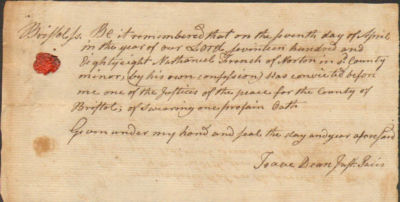 Bristol ss. Be it remembered that on the seventh day of April
in the year of our Lord seventeen hundred and
Eightyeight Nathaniel French of Norton in sd County
minor, (by his own confession) Was convicted before
me one of the Justices of the peace for the County of
Bristol, of swearing one profain Oath
Given under my hand and seal the day and year aforesaid
Isaac Dean Just: Pacis